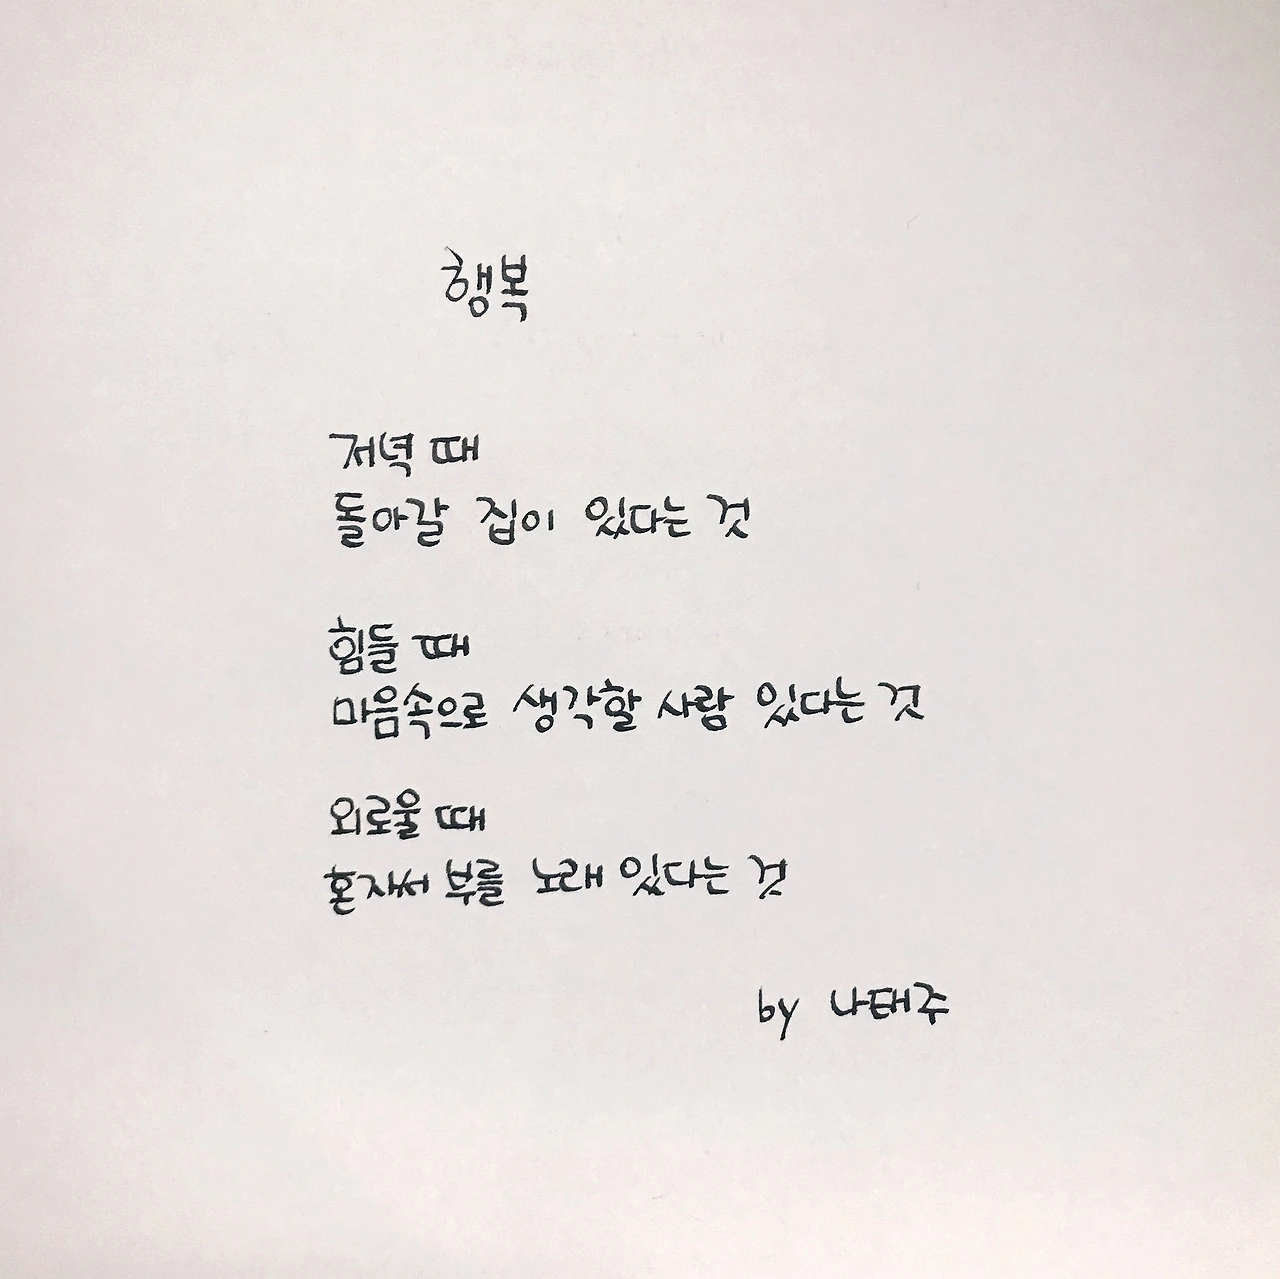 행복
저녁 때
돌아갈 집이 있다는 것
힘들 때
마음속으로 생각할 사람 있다는 것
외로울 때
혼자서 부를 노래 있다는 것
by 나태주